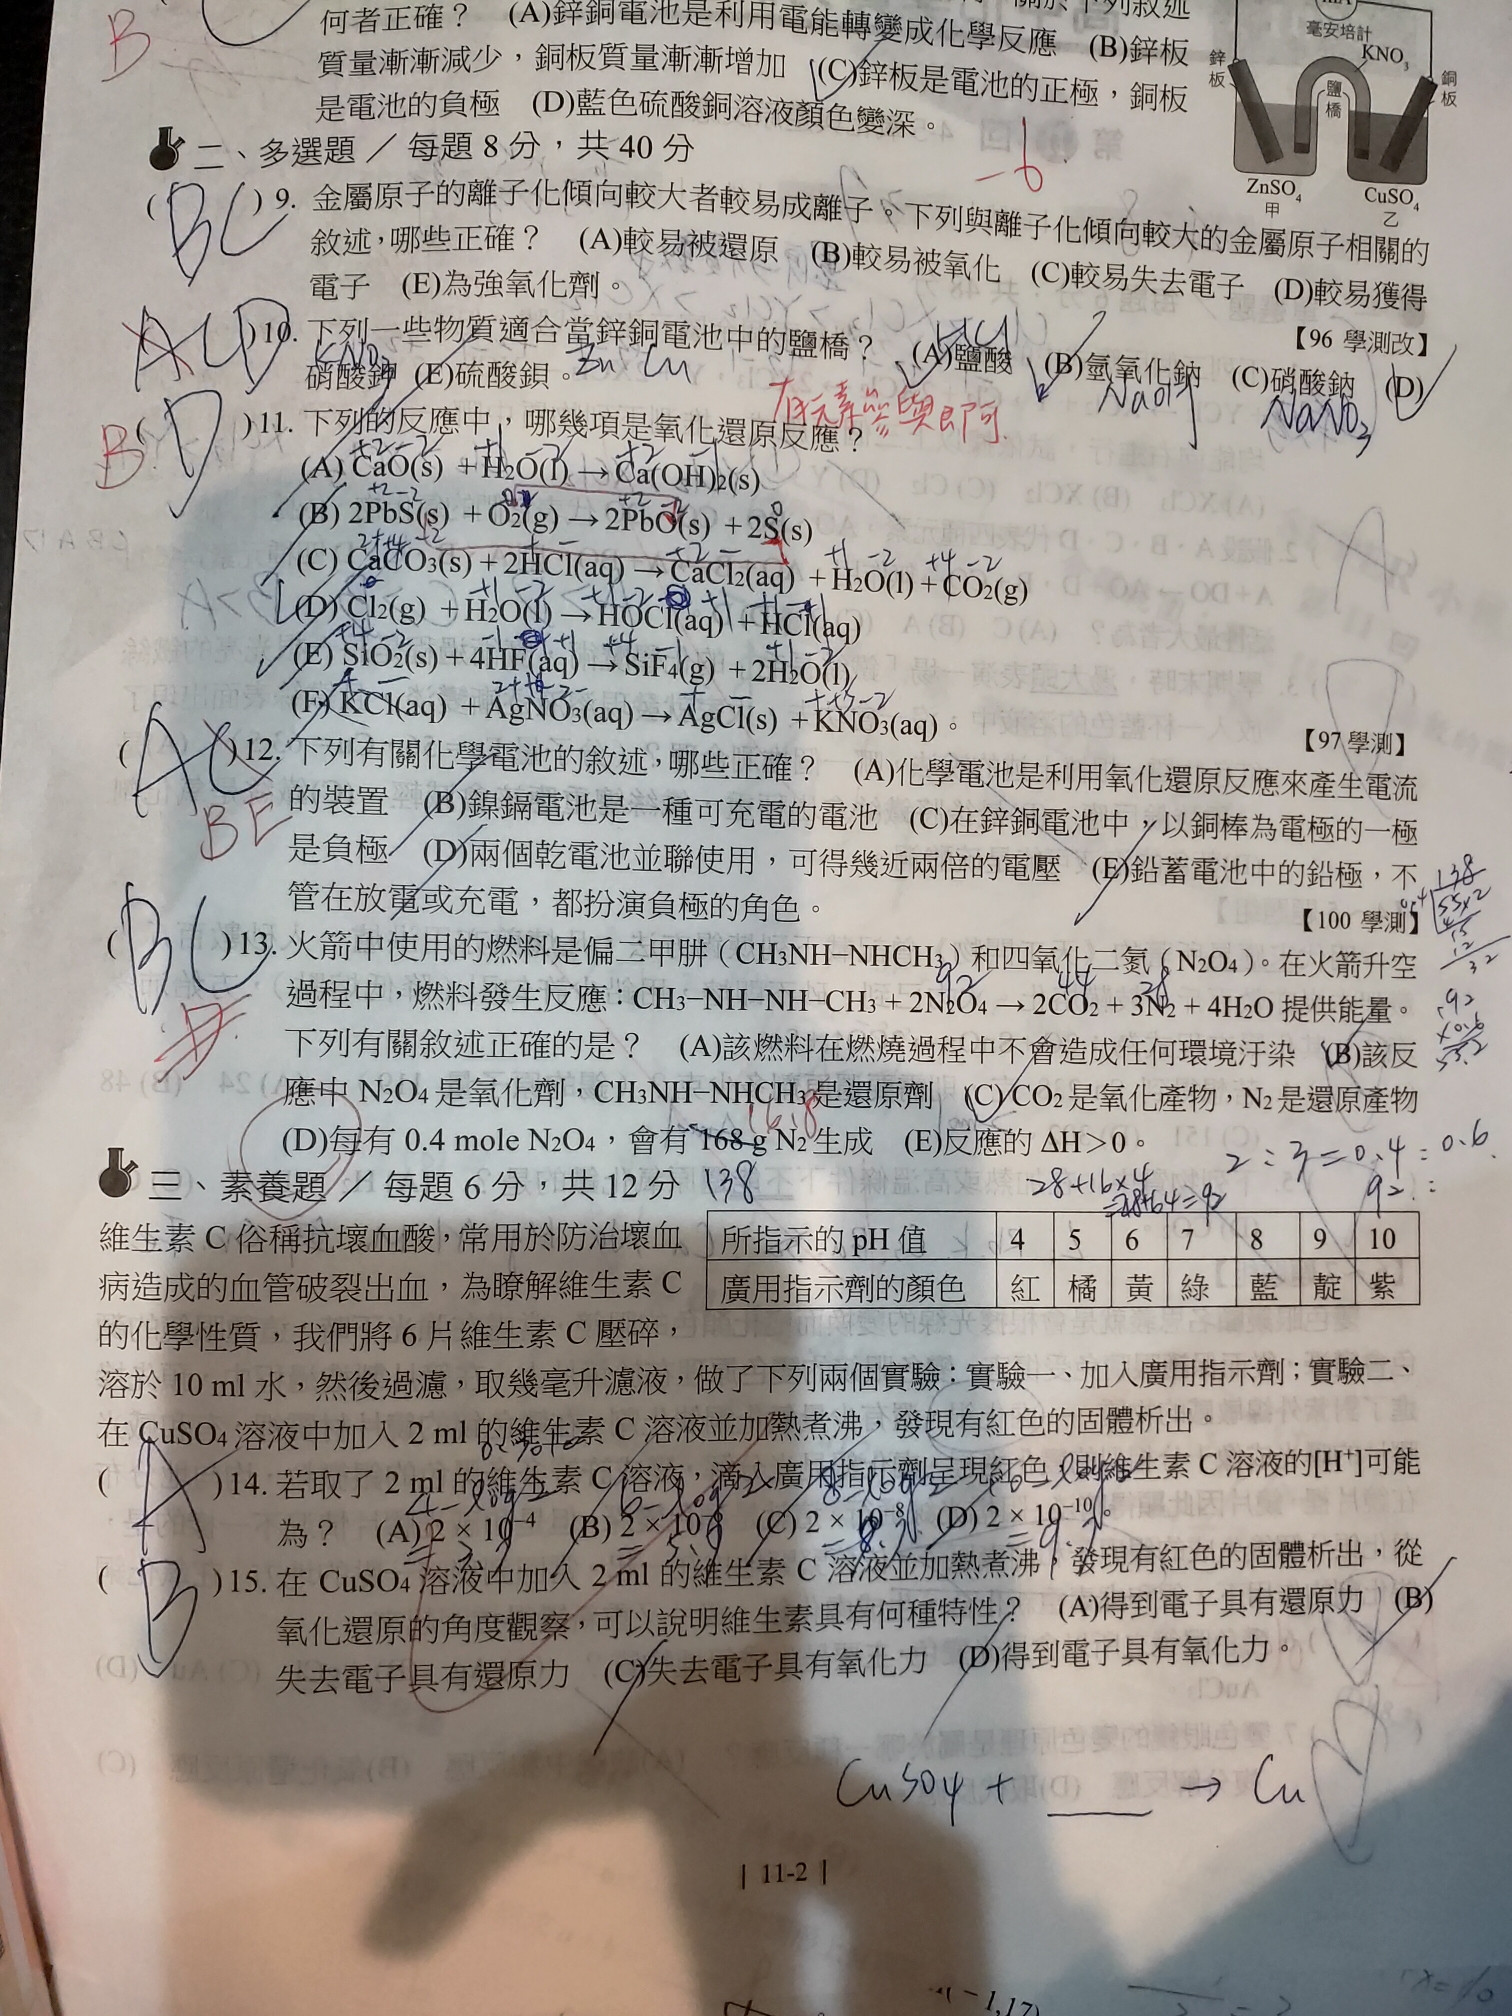 何者正確？ (A)鋅銅電池是利用電能轉變成化學反應 (B)鋅板
質量漸漸減少，銅板質量漸漸增加 (C)鋅板是電池的正極，銅板
是電池的負極 (D)藍色硫酸銅溶液顏色變深。
B
mA
毫安培計
KNO3
鋅板
銅板
鹽橋
ZnSO4
甲
CuSO4
乙
-6
二、多選題／每題8分，共40分
( BC ) 9. 金屬原子的離子化傾向較大者較易成離子。下列與離子化傾向較大的金屬原子相關的
敘述，哪些正確？ (A)較易被還原 (B)較易被氧化 (C)較易失去電子 (D)較易獲得
電子 (E)為強氧化劑。
【96 學測改】
( ACD ) 10. 下列一些物質適合當鋅銅電池中的鹽橋？ (A)鹽酸 (B)氫氧化鈉 (C)硝酸鈉 (D)
硝酸鉀 (E)硫酸鋇。
KNO3
Zn Cu
HCl
NaOH
NaNO3
有元素參與即可
B
( D ) 11. 下列的反應中，哪幾項是氧化還原反應？
(A) CaO(s) + H2O(l) → Ca(OH)2(s)
(B) 2PbS(s) + O2(g) → 2PbO(s) + 2S(s)
(C) CaCO3(s) + 2HCl(aq) → CaCl2(aq) + H2O(l) + CO2(g)
(D) Cl2(g) + H2O(l) → HOCl(aq) + HCl(aq)
(E) SiO2(s) + 4HF(aq) → SiF4(g) + 2H2O(l)
(F) KCl(aq) + AgNO3(aq) → AgCl(s) + KNO3(aq)。
【97 學測】
( AC ) 12. 下列有關化學電池的敘述，哪些正確？ (A)化學電池是利用氧化還原反應來產生電流
的裝置 (B)鎳鎘電池是一種可充電的電池 (C)在鋅銅電池中，以銅棒為電極的一極
BE
是負極 (D)兩個乾電池並聯使用，可得幾近兩倍的電壓 (E)鉛蓄電池中的鉛極，不
管在放電或充電，都扮演負極的角色。
【100 學測】
( BC ) 13. 火箭中使用的燃料是偏二甲肼（CH3NH−NHCH3）和四氧化二氮（N2O4）。在火箭升空
92 44 28
過程中，燃料發生反應：CH3−NH−NH−CH3 + 2N2O4 → 2CO2 + 3N2 + 4H2O 提供能量。
下列有關敘述正確的是？ (A)該燃料在燃燒過程中不會造成任何環境汙染 (B)該反
應中 N2O4 是氧化劑，CH3NH−NHCH3 是還原劑 (C) CO2 是氧化產物，N2 是還原產物
16.8
(D)每有 0.4 mole N2O4，會有 168 g N2 生成 (E)反應的 ΔH＞0。
2:3=0.4:0.6
28+16×4
=28+64=92
92:
138
三、素養題／每題6分，共12分
所指示的 pH 值 4 5 6 7 8 9 10
廣用指示劑的顏色 紅 橘 黃 綠 藍 靛 紫
維生素 C 俗稱抗壞血酸，常用於防治壞血
病造成的血管破裂出血，為瞭解維生素 C
的化學性質，我們將 6 片維生素 C 壓碎，
溶於 10 ml 水，然後過濾，取幾毫升濾液，做了下列兩個實驗：實驗一、加入廣用指示劑；實驗二、
在 CuSO4 溶液中加入 2 ml 的維生素 C 溶液並加熱煮沸，發現有紅色的固體析出。
0.3010
( A ) 14. 若取了 2 ml 的維生素 C 溶液，滴入廣用指示劑呈現紅色，則維生素 C 溶液的[H+]可能
4-log2 6-log2 8-log2 10-log2
為？ (A) 2 × 10−4 (B) 2 × 10−6 (C) 2 × 10−8 (D) 2 × 10−10。
( B ) 15. 在 CuSO4 溶液中加入 2 ml 的維生素 C 溶液並加熱煮沸，發現有紅色的固體析出，從
氧化還原的角度觀察，可以說明維生素具有何種特性？ (A)得到電子具有還原力 (B)
失去電子具有還原力 (C)失去電子具有氧化力 (D)得到電子具有氧化力。
CuSO4 + ___ → Cu
| 11-2 |
(-1,17)